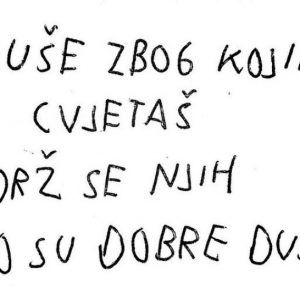 UŠE ZBOG KOJI
CVJETAŠ
DRŽ SE NJIH
O SU DOBRE DUŠ